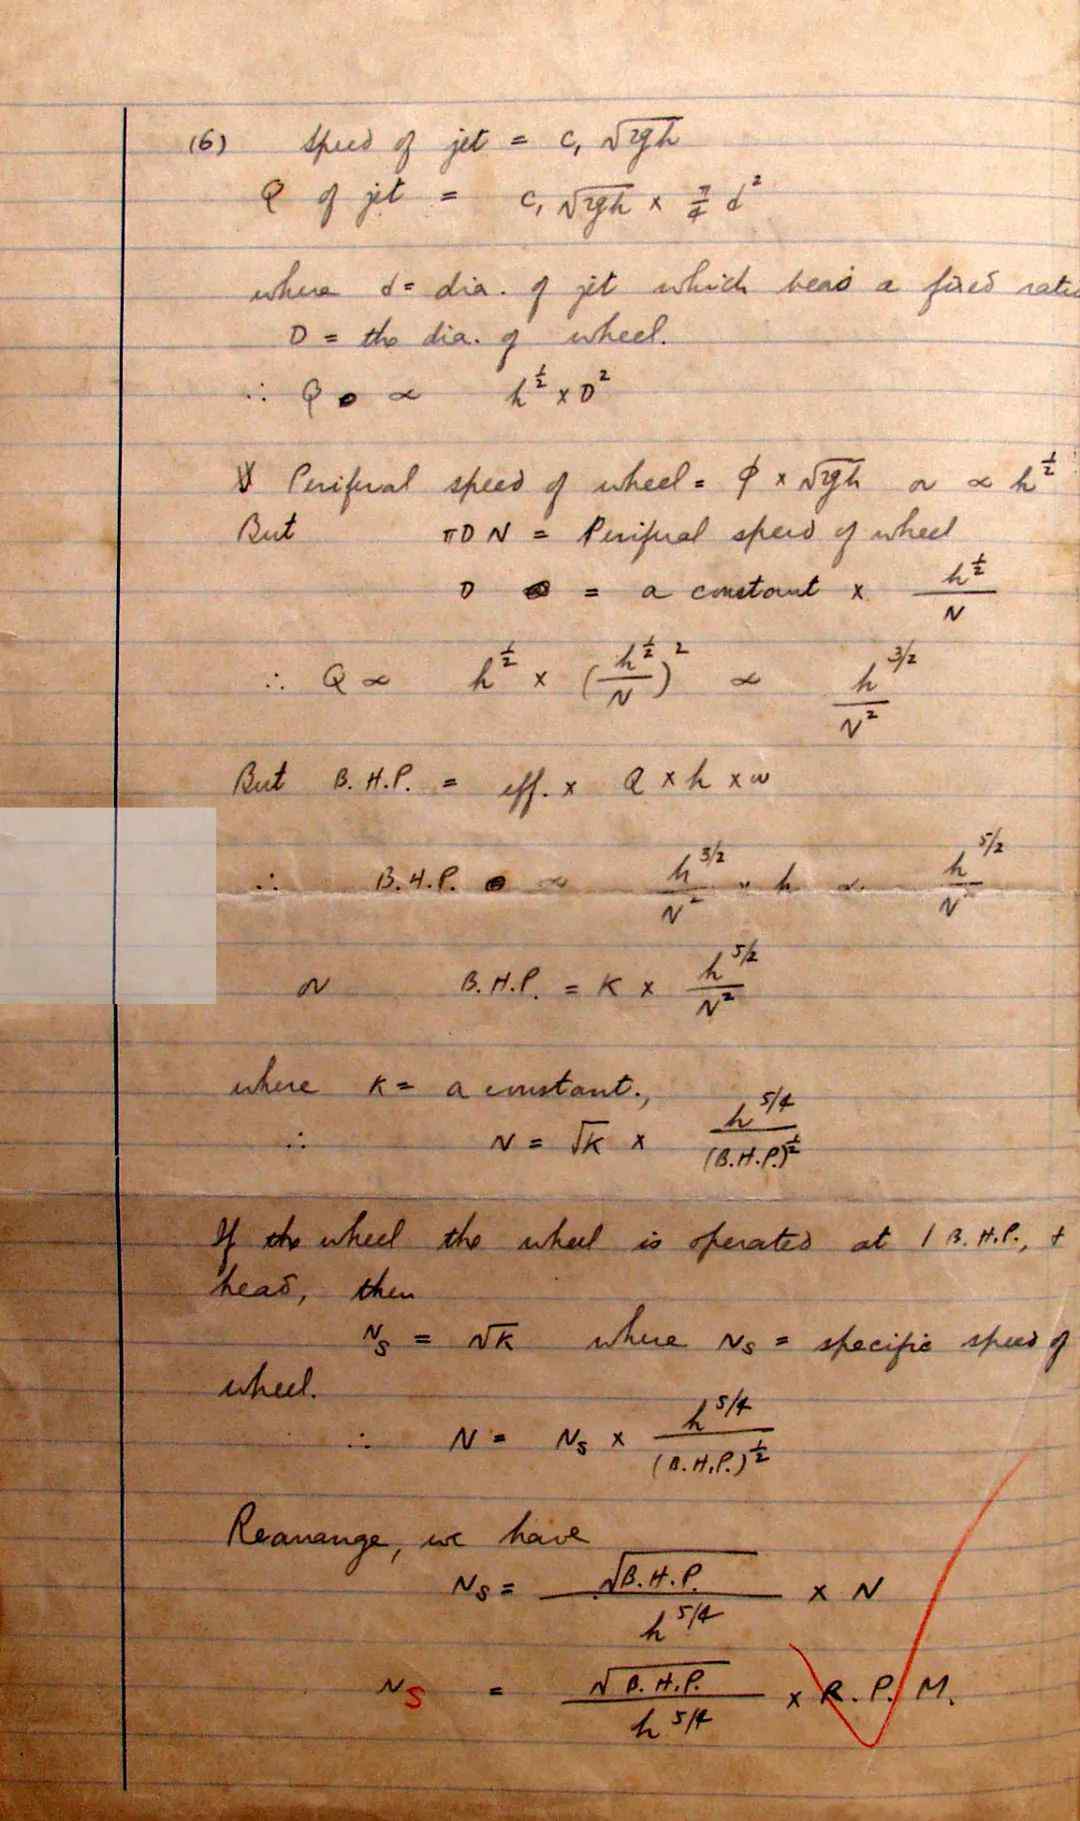 (6) Speed of jet = C₁ √2gh
Q of jet = C₁ √2gh × π/4 d²
where d = dia. of jet which bears a fixed ratio
D = the dia. of wheel.
∴ Q ∝ h^½ × D²
Periferal speed of wheel = φ × √2gh or ∝ h^½
But πDN = Periferal speed of wheel
D = a constant × h^½/N
∴ Q ∝ h^½ × (h^½/N)² ∝ h^3/2/N²
But B.H.P. = eff. × Q × h × w
∴ B.H.P. ∝ h^3/2/N² × h ∝ h^5/2/N²
or B.H.P. = K × h^5/2/N²
where K = a constant.,
∴ N = √K × h^5/4/(B.H.P.)^½
If the wheel the wheel is operated at 1 B.H.P., +
head, then
N_S = √K where N_S = specific speed of
wheel.
∴ N = N_S × h^5/4/(B.H.P.)^½
Rearange, we have
N_S = √B.H.P./h^5/4 × N
N_S = √B.H.P./h^5/4 × R.P.M.